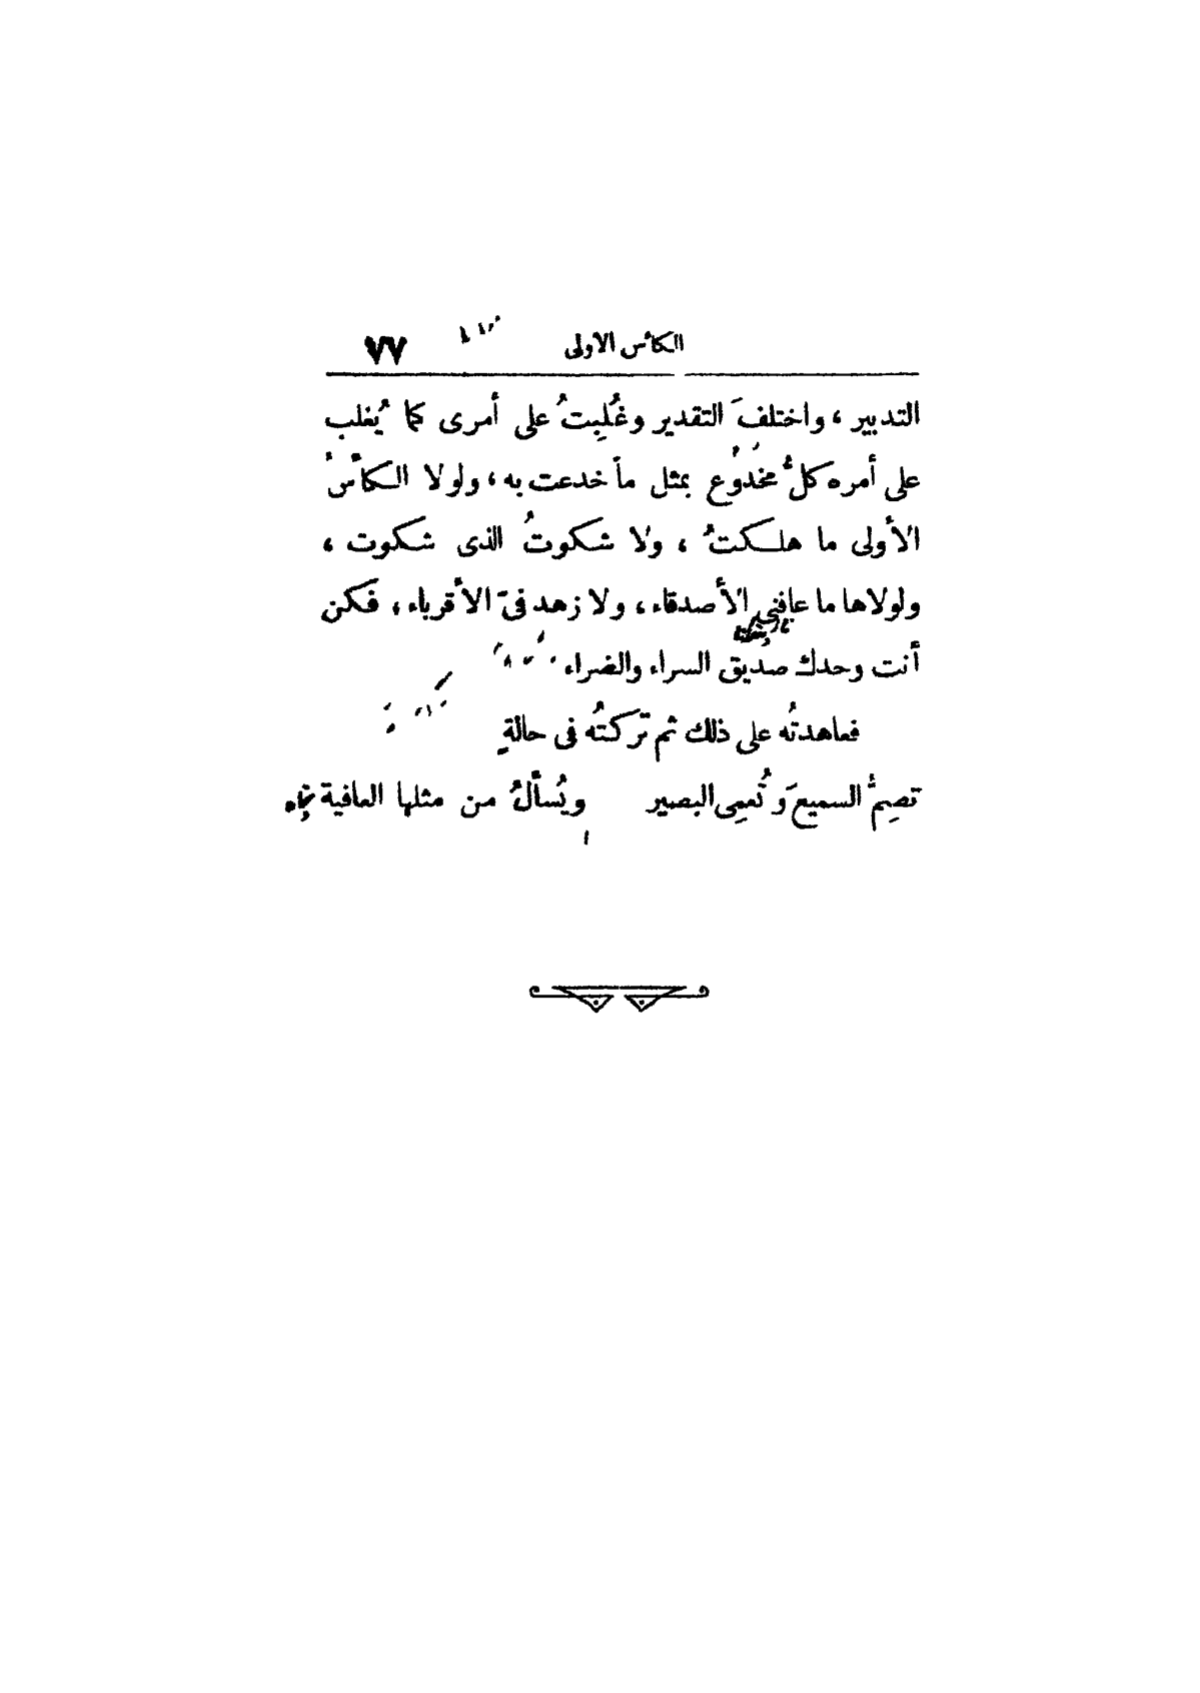 الكأس الاولى ٧٧
التدبير ، واختلفَ التقدير وغُلِبتُ على أمرى كما يُغلب
على أمره كلُّ مخدُوع بمثل ما خدعت به ، ولولا الكأسُ
الأولى ما هلكتُ ، ولا شكوتُ الذى شكوت ،
ولولاها ما عافنى الأصدقاء ، ولا زهد فىّ الأقرباء ، فكن
أنت وحدك صديق السراء والضراء
فعاهدتُه على ذلك ثم تركتُه فى حالةٍ
تصِمُّ السميعَ وتُعمِى البصير ويُسألُ من مثلها العافية